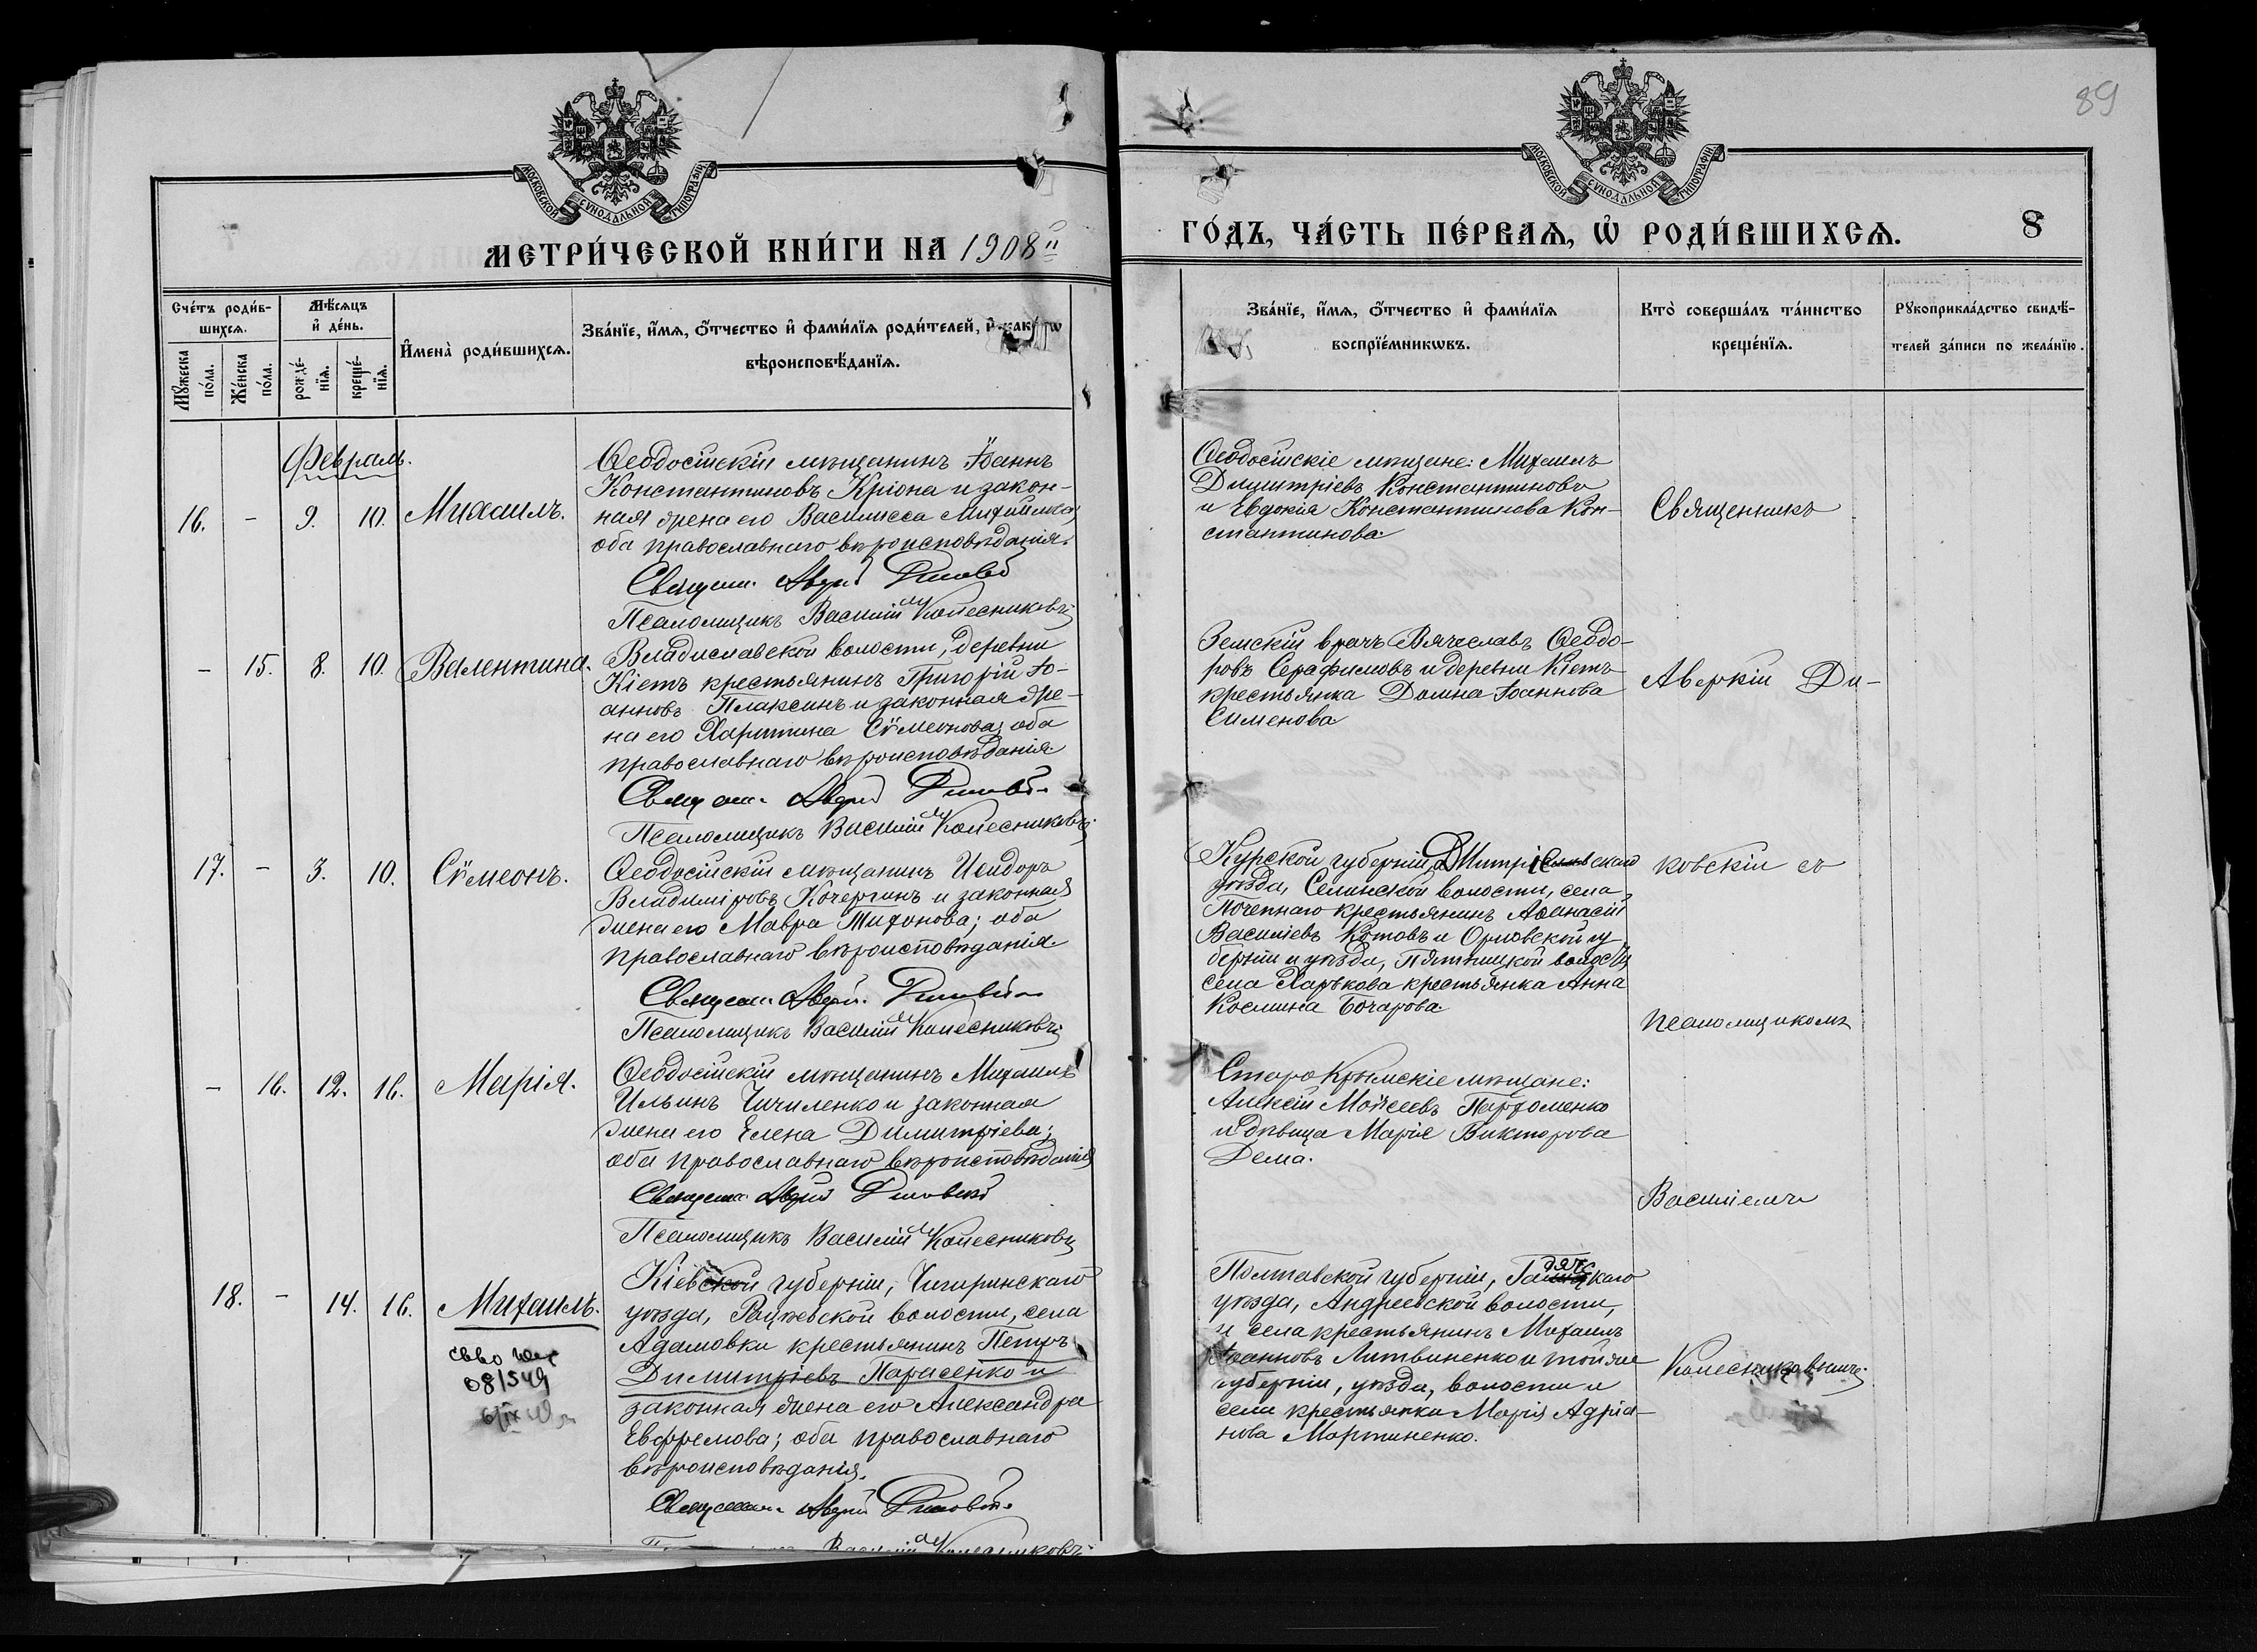 89
МОСКОВСКОЙ СѴНОДАЛЬНОЙ ТИПОГРАФІИ
МОСКОВСКОЙ СѴНОДАЛЬНОЙ ТИПОГРАФІИ
МЕТРИ́ЧЕСКОЙ КНИ́ГИ НА 1908й
ГО́ДЪ, ЧА́СТЬ ПЕ́РВАѦ, Ѽ РОДИ́ВШИХСѦ.
8
Сче́тъ роди́в-
шихсѧ.
Мꙋжеска
по́ла.
Же́нска
по́ла.
Мѣ́сѧцъ
и҆ де́нь.
рожде́-
нїѧ.
креще́-
нїѧ.
И҆мена̀ роди́вшихсѧ.
Зва́нїе, и҆́мѧ, ѻ҆́тчество и҆ фами́лїѧ роди́телей, и҆ како́гѡ
вѣроисповѣ́данїѧ.
Зва́нїе, и҆́мѧ, ѻ҆́тчество и҆ фами́лїѧ
воспрїе́мникѡвъ.
Кто̀ соверша́лъ та́инство
креще́нїѧ.
Рꙋкоприкла́дство свидѣ́-
телей за́писи по жела́нїю.
Февраль.
16. - 9. 10. Михаилъ.
Ѳеодосійскій мѣщанинъ Іоаннъ
Константиновъ Кріона и закон-
ная жена его Василисса Михайлова;
оба православнаго вѣроисповѣданія.
Священ.
Псаломщикъ Василій Колесниковъ
Ѳеодосійскіе мѣщане: Михаилъ
Димитріевъ Константиновъ
и Евдокія Константинова Кон-
стантинова.
Священникъ
- 15. 8. 10. Валентина.
Владиславской волости, деревни
Кіетъ крестьянинъ Григорій Іо-
анновъ Плаксинъ и законная же-
на его Харитина Сѵмеонова; оба
православнаго вѣроисповѣданія.
Священ.
Псаломщикъ Василій Колесниковъ
Земскій врачъ Вячеславъ Ѳеодо-
ровъ Серафимовъ и деревни Кіетъ
крестьянка Домна Іоаннова
Сименова
Аверкій Ди-
17. - 3. 10. Сѵмеонъ.
Ѳеодосійскій мѣщанинъ Исидоръ
Владиміровъ Кочергинъ и законная
жена его Мавра Тихонова; оба
православнаго вѣроисповѣданія.
Священ.
Псаломщикъ Василій Колесниковъ
Курской губерніи, Дмитріевскаго
уѣзда, Селинской волости, села
Почепнаго крестьянинъ Аѳанасій
Василіевъ Котовъ и Орловской гу
берніи и уѣзда, Пятницкой волости
села Харькова крестьянка Анна
Космина Бочарова
ковскій съ
псаломщикомъ
- 16. 12. 16. Марія.
Ѳеодосійскій мѣщанинъ Михаилъ
Ильинъ Чичиленко и законная
жена его Елена Димитріева;
оба православнаго вѣроисповѣданія
Священ.
Псаломщикъ Василій Колесниковъ
Старо Крымскіе мѣщане:
Алексій Моисеевъ Пархоменко
и дѣвица Марія Викторова
Дема.
Василіемъ
18. - 14. 16. Михаилъ.
081549
Кіевской губерніи, Чигиринскаго
уѣзда, Рацевской волости, села
Адамовки крестьянинъ Петръ
Димитріевъ Парасенко и
законная жена его Александра
Евфремова; оба православнаго
вѣроисповѣданія.
Священ.
Василій Колесниковъ
Полтавской губерніи, Гадячскаго
уѣзда, Андреевской волости,
и села крестьянинъ Михаилъ
Іоанновъ Литвиненко и той же
губерніи, уѣзда, волости и
села крестьянка Марія Адріа-
нова Мартиненко.
Колесниковымъ